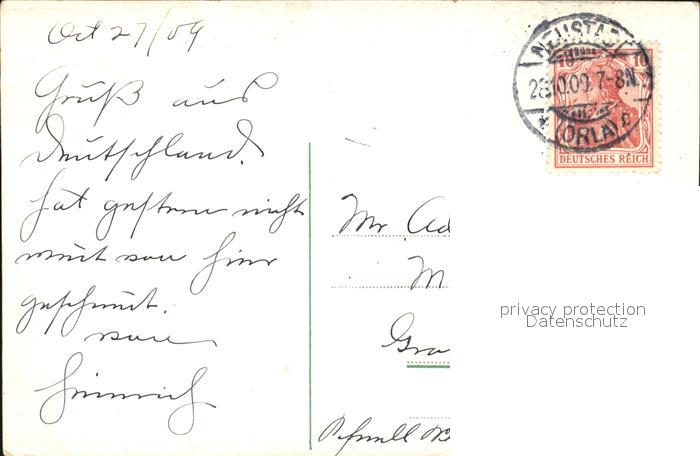 Oct 27/09
Gruß aus
Deutschland.
hat gestern nicht
mit von hier
von
Heinrich
NEUSTADT
28.10.09. 7-8N.
* (ORLA) c
10 10
DEUTSCHES REICH
Mr Ad
M
Gra
privacy protection
Datenschutz